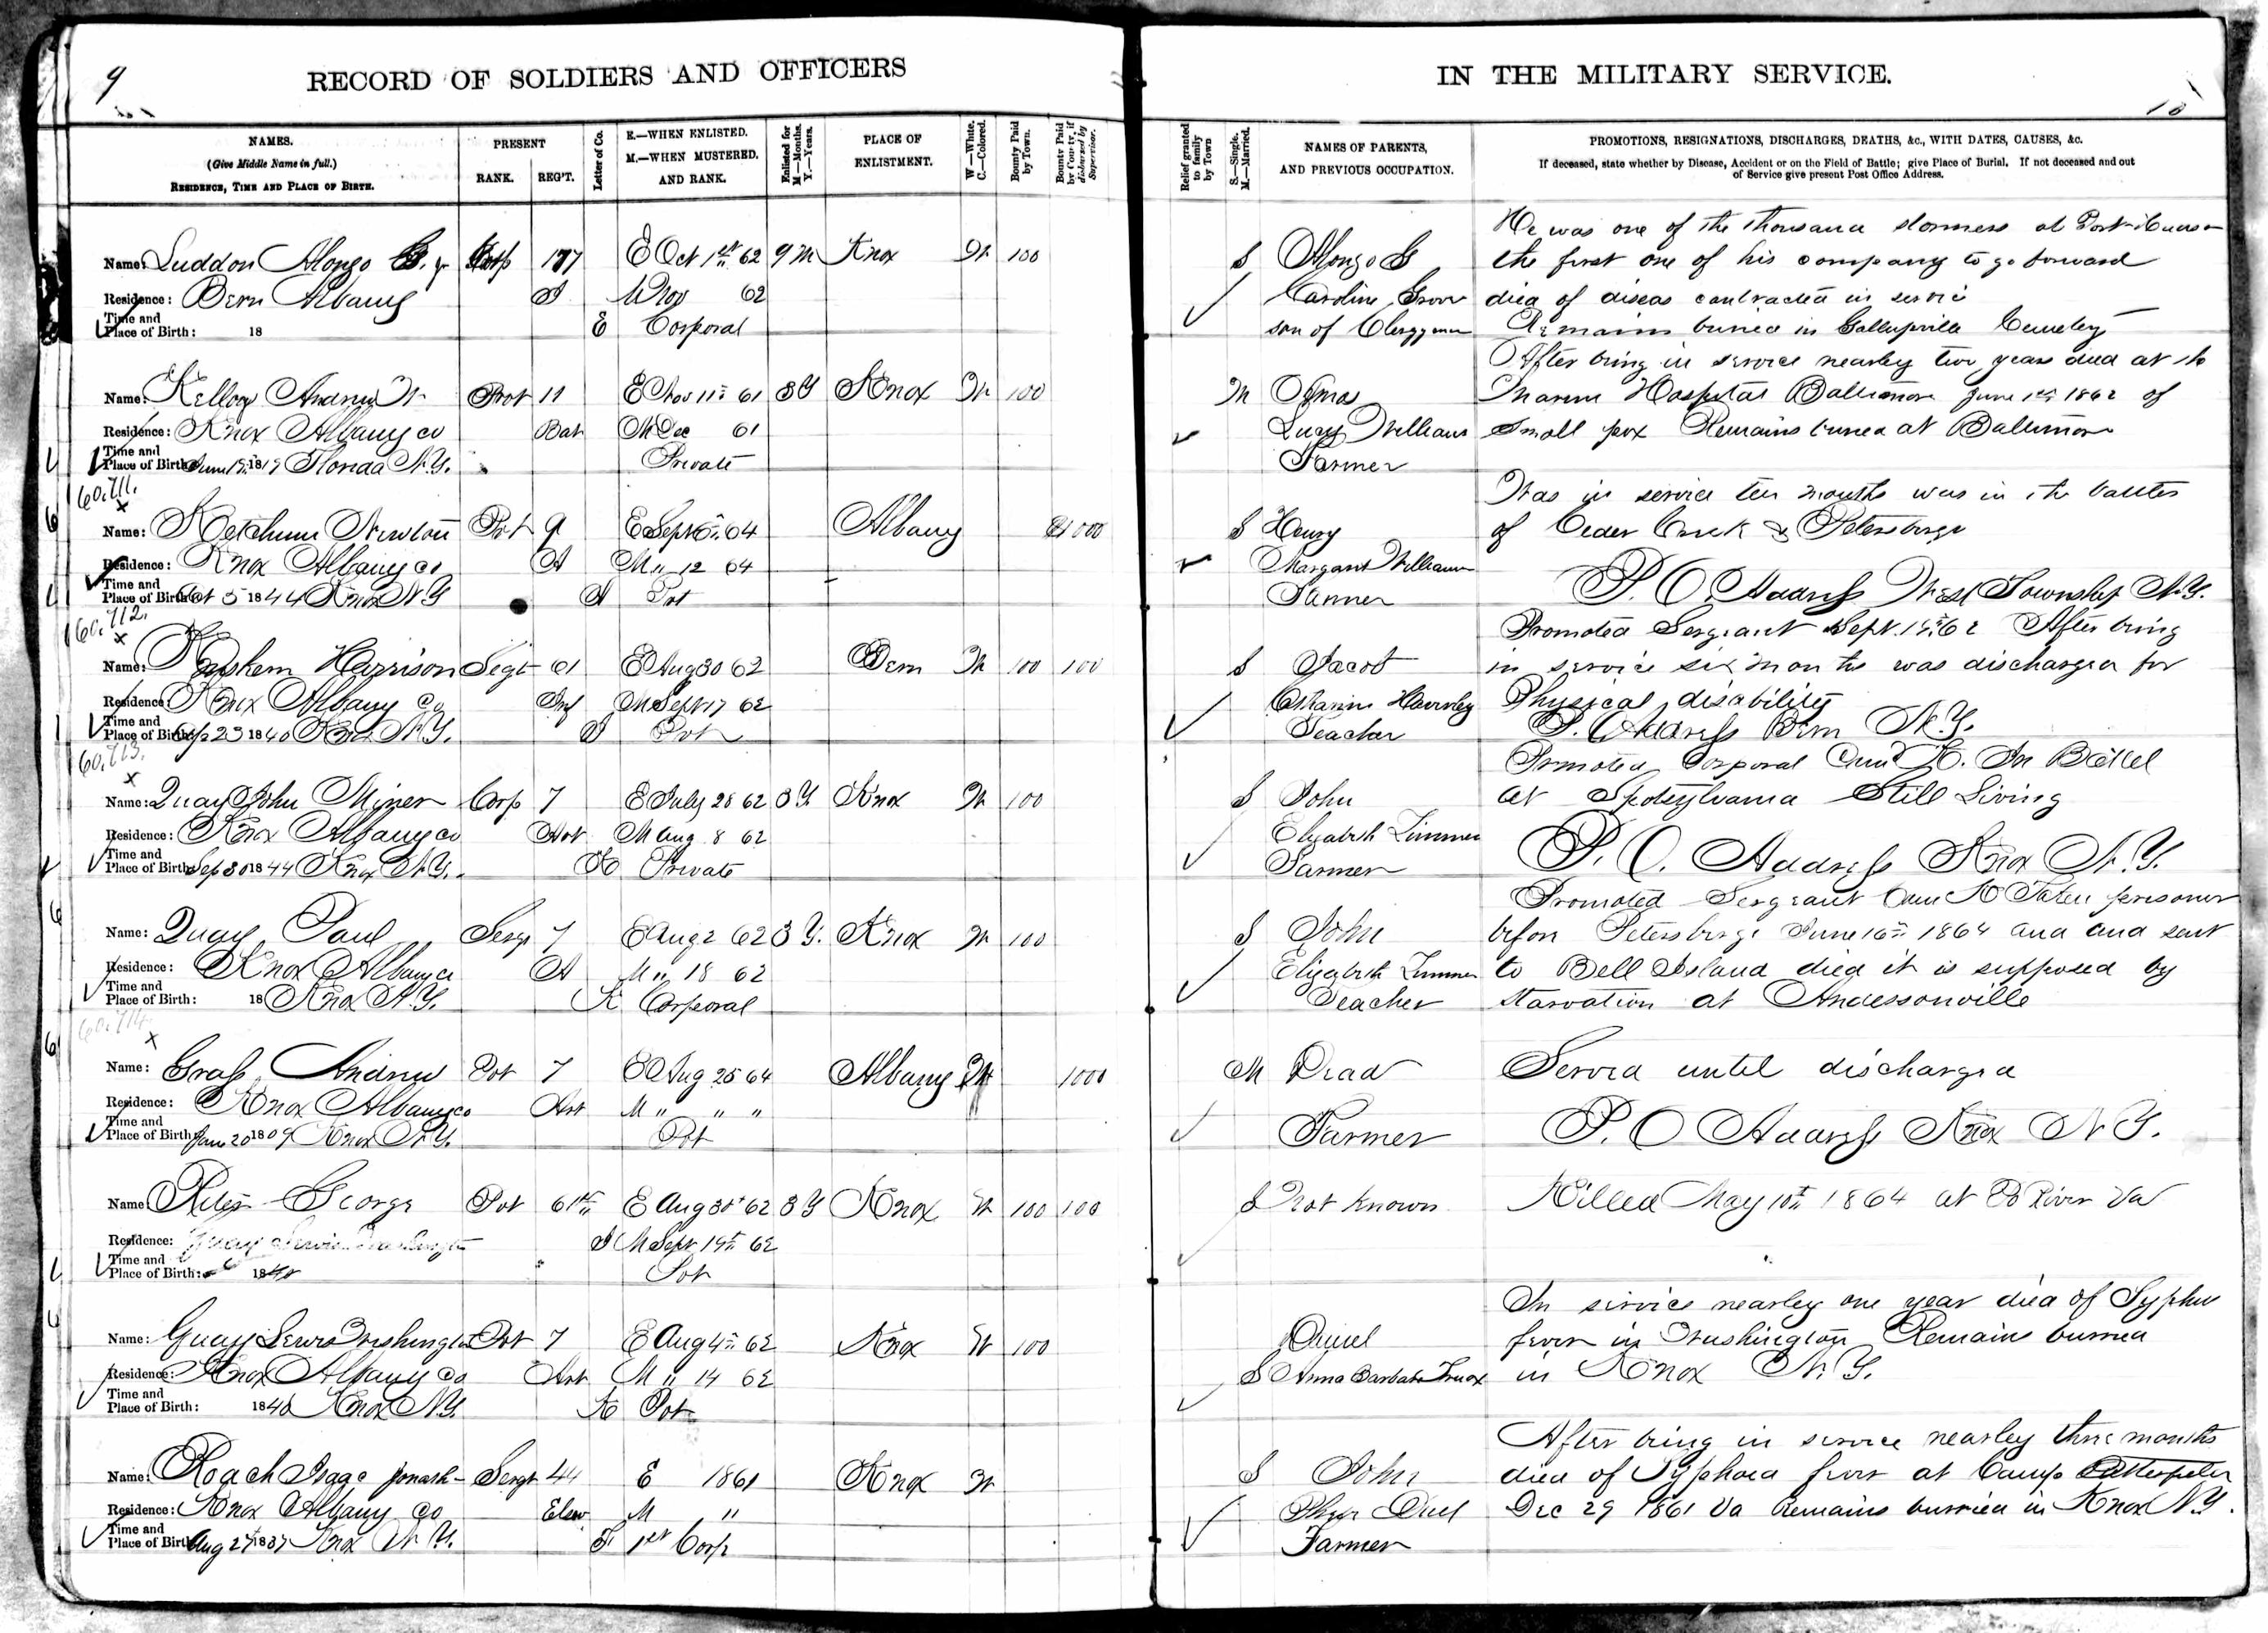 9
RECORD OF SOLDIERS AND OFFICERS
NAMES.
(Give Middle Name in full.)
RESIDENCE, TIME AND PLACE OF BIRTH.
PRESENT
RANK. REG'T.
Letter of Co.
E.—WHEN ENLISTED.
M.—WHEN MUSTERED.
AND RANK.
Enlisted for M—Months. Y.—Years.
PLACE OF ENLISTMENT.
W.—White. C.—Colored.
Bounty Paid by Town.
Bounty Paid by County, if disbursed by Supervisor.
Name: Luddon Alonzo G. jr Corp 177 E Oct 1st 62 9 M Knox W 100
Residence: Bern Albany M Nov 62
Time and Place of Birth: 18 E Corporal
Name: Kellogg Andrew W Privt 11 E Nov 11th 61 3 Y Knox W 100
Residence: Knox Albany co Bat M Dec 61
Time and Place of Birth June 18 1819 Florida N.Y. Private
60.711.
x
Name: Ketchum Newton Pvt 9 E Sept 6th 64 Albany 1000
Residence: Knox Albany co A M " 12 64
Time and Place of Birth Oct 5 1844 Knox N Y A Pvt
60.712.
x
Name: Harrison Segt 61 E Aug 30 62 Bern W 100 100
Residence Knox Albany Co Inf M Sept 17 62
Time and Place of Birth Sep 23 1840 Knox N.Y. I Pvt
60.713.
x
Name: Quay John Miner Corp 7 E July 28 62 3 Y Knox W 100
Residence: Knox Albany co Art M Aug 8 62
Time and Place of Birth Sep 30 1844 Knox N.Y. K Private
Name: Quay Paul Sergt 7 E Aug 2 62 3 Y. Knox W 100
Residence: Knox Albany co A M " 18 62
Time and Place of Birth: 18 Knox N.Y. K Corporal
60.714.
x
Name: Graff Andrew Pvt 7 E Aug 25 64 Albany W 1000
Residence: Knox Albany co Art M " " "
Time and Place of Birth Jan 20 1809 Knox N.Y. Pvt
Name: George Pvt 61st E Aug 30th 62 3 Y Knox W 100 100
Residence: Quay Lewis Washington I M Sept 19th 62
Time and Place of Birth: 1840 Pvt
Name: Quay Lewis Washington Pvt 7 E Aug 4th 62 Knox W 100
Residence: Knox Albany Co Art M " 14 62
Time and Place of Birth: 1840 Knox N.Y. K Pvt
Name: Roach Isaac Jonash Sergt 44 E 1861 Knox W
Residence: Knox Albany Co M "
Time and Place of Birth Aug 27th 1837 Knox N.Y. F 1st Corp
IN THE MILITARY SERVICE.
10
Relief granted to family by Town
S.—Single. M.—Married.
NAMES OF PARENTS,
AND PREVIOUS OCCUPATION.
PROMOTIONS, RESIGNATIONS, DISCHARGES, DEATHS, &c., WITH DATES, CAUSES, &c.
If deceased, state whether by Disease, Accident or on the Field of Battle; give Place of Burial. If not deceased and out
of Service give present Post Office Address.
He was one of the thousand stormers at Port Hudson
S Alonzo G the first one of his company to go forward
Caroline died of diseas contracted in servic
son of Clergyman Remains buried in Gallupville Cemetery
After being in service nearley two years died at the
M Amos Marine Hospital Baltimore June 1st 1862 of
Lucy William small pox Remains buried at Baltimore
Farmer
Was in service ten months was in the battles
S Henry of Ceder Creek & Petersburge
Margaret William
Farmer P. O. Address West Township N.Y.
Promoted Sergeant Sept. 19th 62 After being
S Jacob in service six months was discharged for
Catharine Haverley Physical disability
Teacher P. O Address Bern N.Y.
Promoted Corporal Co. K. In Battel
S John at Spotsylvania Still Living
Elizabeth Zimmer
Farmer P. O. Address Knox N.Y.
Promoted Sergeant Com K Taken personer
S John before Petersburge June 16th 1864 and and sent
Elizabeth Zimmer to Bell Island died it is supposed by
Teacher starvation at Andersonville
M Dead Served until discharged
Farmer P. O Address Knox N Y.
S Not known Killed May 10th 1864 at Po River Va
In service nearley one year died of Typhus
Daniel fever in Washington Remains burried
S Anna Barbara Truax in Knox N.Y.
After being in service nearley three months
S John died of Typhoid fever at Camp
Dec 29 1861 Va Remains burried in Knox N.Y.
Farmer